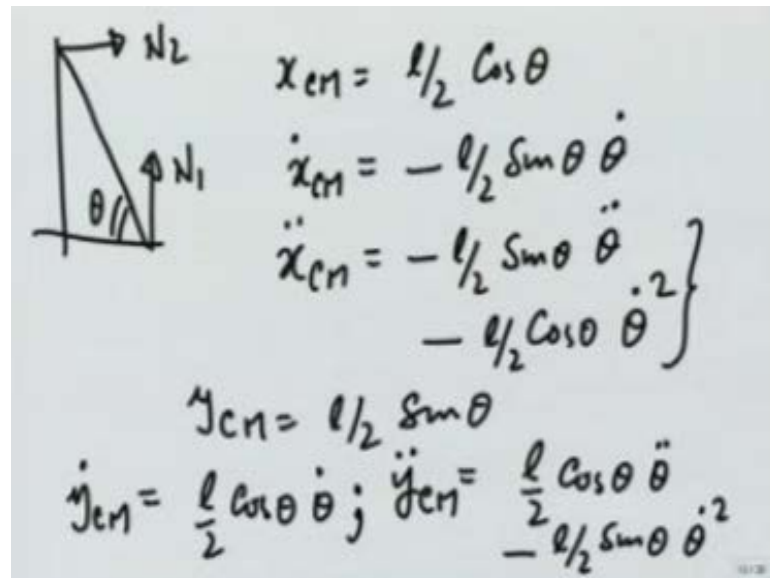 N2
x_cm = l/2 Cosθ
N1
θ
ẋ_cm = - l/2 Sinθ θ̇
ẍ_cm = - l/2 Sinθ θ̈
- l/2 Cosθ θ̇²
y_cm = l/2 Sinθ
ẏ_cm = l/2 Cosθ θ̇ ; ÿ_cm = l/2 Cosθ θ̈
- l/2 Sinθ θ̇²